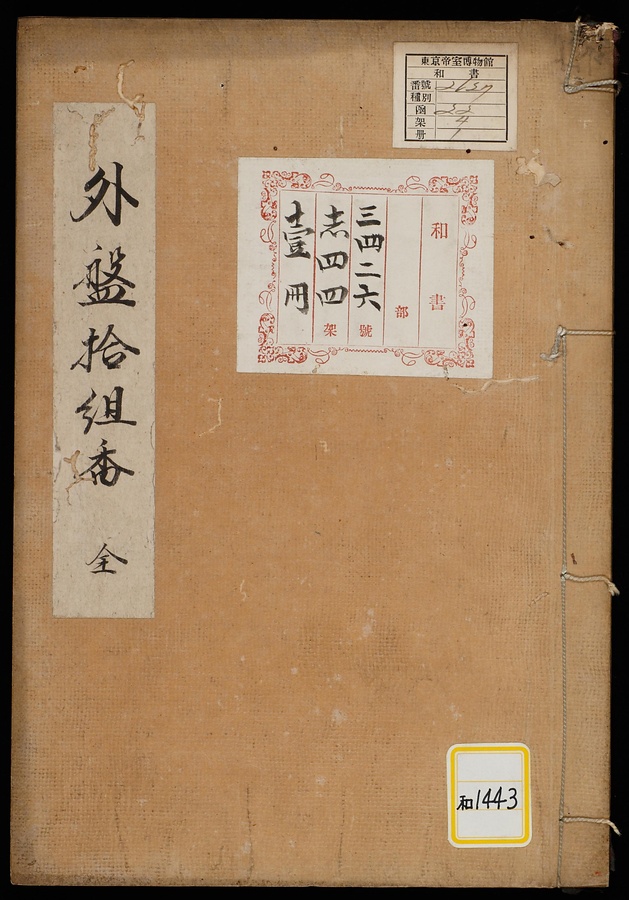 東京帝室博物館
和書
番號
種別
函 22
架 4
册 1
和書
部
三四二六號
四四架
壹冊
外盤拾組番 全
和1443